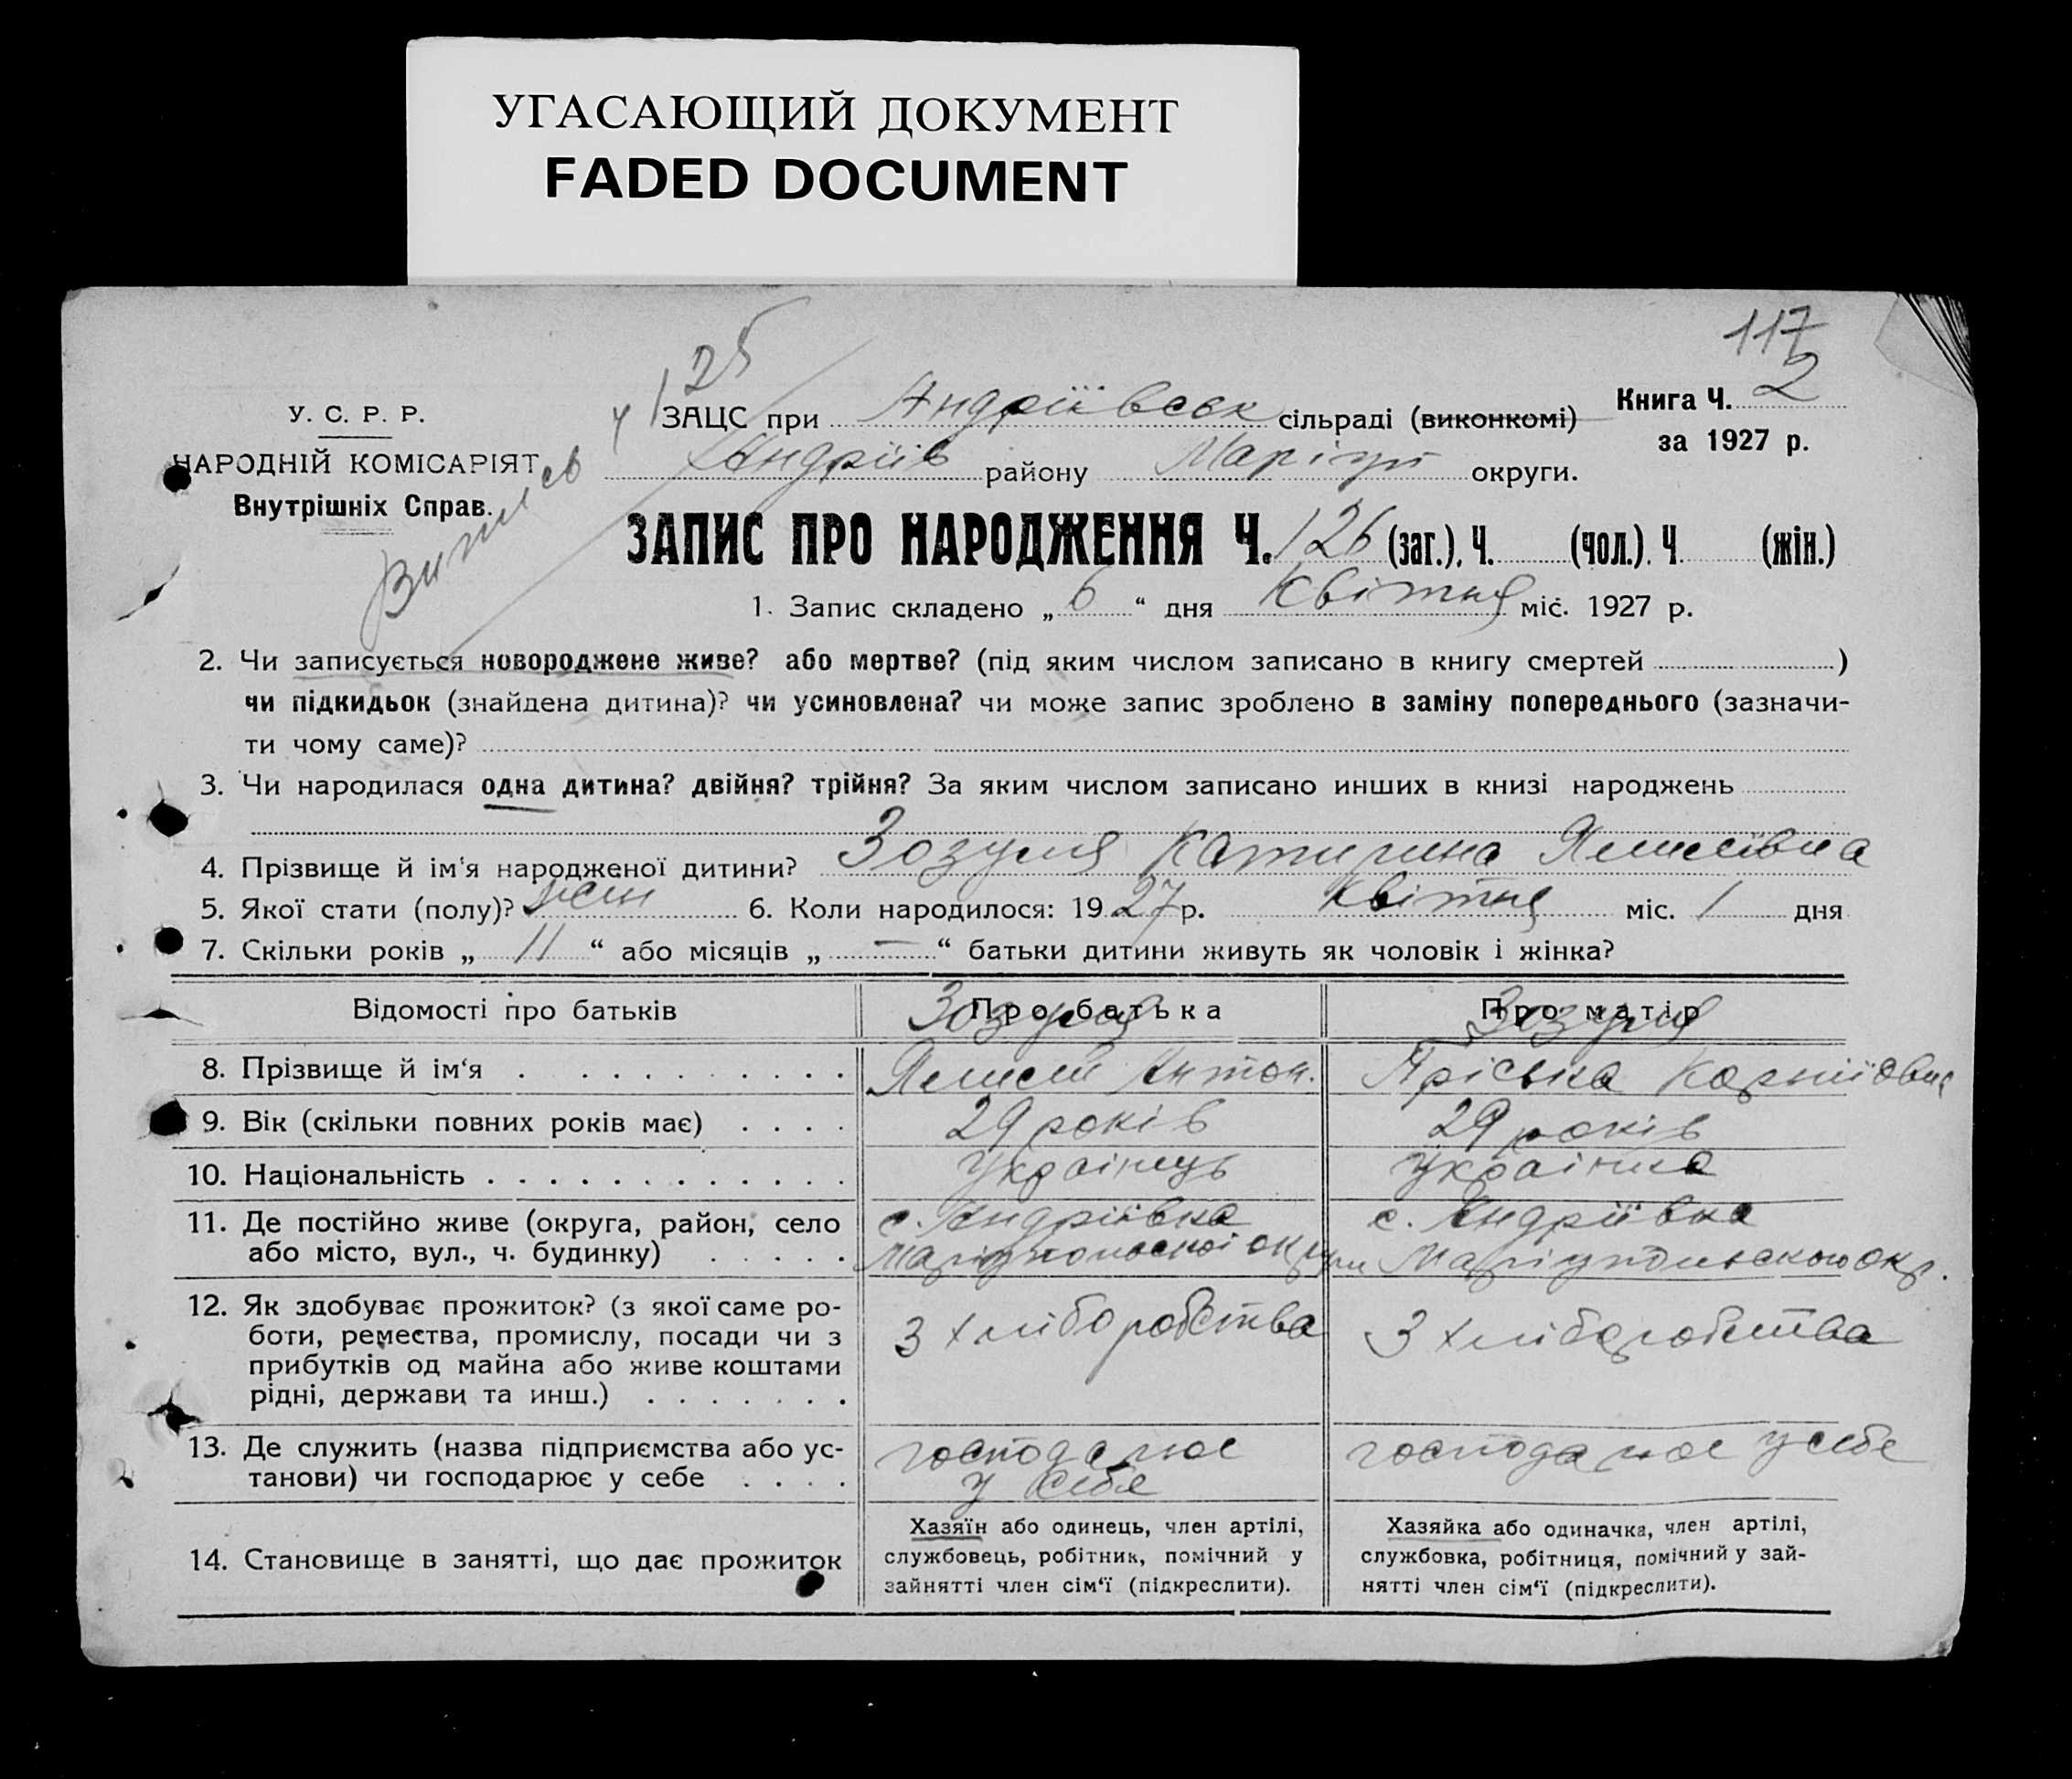 УГАСАЮЩИЙ ДОКУМЕНТ
FADED DOCUMENT
117
125
У. С. Р. Р.
НАРОДНІЙ КОМІСАРІЯТ
Внутрішніх Справ.
ЗАЦС при Андріївськ сільраді (виконкомі)
Книга Ч. 2
за 1927 р.
Андріїв району Маріуп округи.
ЗАПИС ПРО НАРОДЖЕННЯ Ч. 126 (заг.), Ч. (чол.). Ч (жін.)
1. Запис складено „ 6 “ дня Квітня міс. 1927 р.
2. Чи записується новороджене живе? або мертве? (під яким числом записано в книгу смертей )
чи підкидьок (знайдена дитина)? чи усиновлена? чи може запис зроблено в заміну попереднього (зазначи-
ти чому саме)?
3. Чи народилася одна дитина? двійня? трійня? За яким числом записано инших в книзі народжень
4. Прізвище й ім‘я народженої дитини? Зозуля Катирина
5. Якої стати (полу)? жін 6. Коли народилося: 1927 р. Квітня міс. 1 дня
7. Скільки років „ 11 “ або місяців „ — “ батьки дитини живуть як чоловік і жінка?
Відомості про батьків Про батька Про матір
Зозуля Зозуля
8. Прізвище й ім‘я Антон. Пріська Карніївна
9. Вік (скільки повних років має) 29 років 29 років
10. Національність Українець Українка
11. Де постійно живе (округа, район, село с. Андріївка с. Андріївка
або місто, вул., ч. будинку) Маріюпольської округи Маріупольскою окр.
12. Як здобуває прожиток? (з якої саме ро-
боти, ремества, промислу, посади чи з З хліборобства З хліборобства
прибутків од майна або живе коштами
рідні, держави та инш.)
13. Де служить (назва підприємства або ус- господарює господарює у себе
танови) чи господарює у себе у себе
14. Становище в занятті, що дає прожиток
Хазяїн або одинець, член артілі,
службовець, робітник, помічний у
зайнятті член сім‘ї (підкреслити).
Хазяйка або одиначка, член артілі,
службовка, робітниця, помічний у зай-
нятті член сім‘ї (підкреслити).